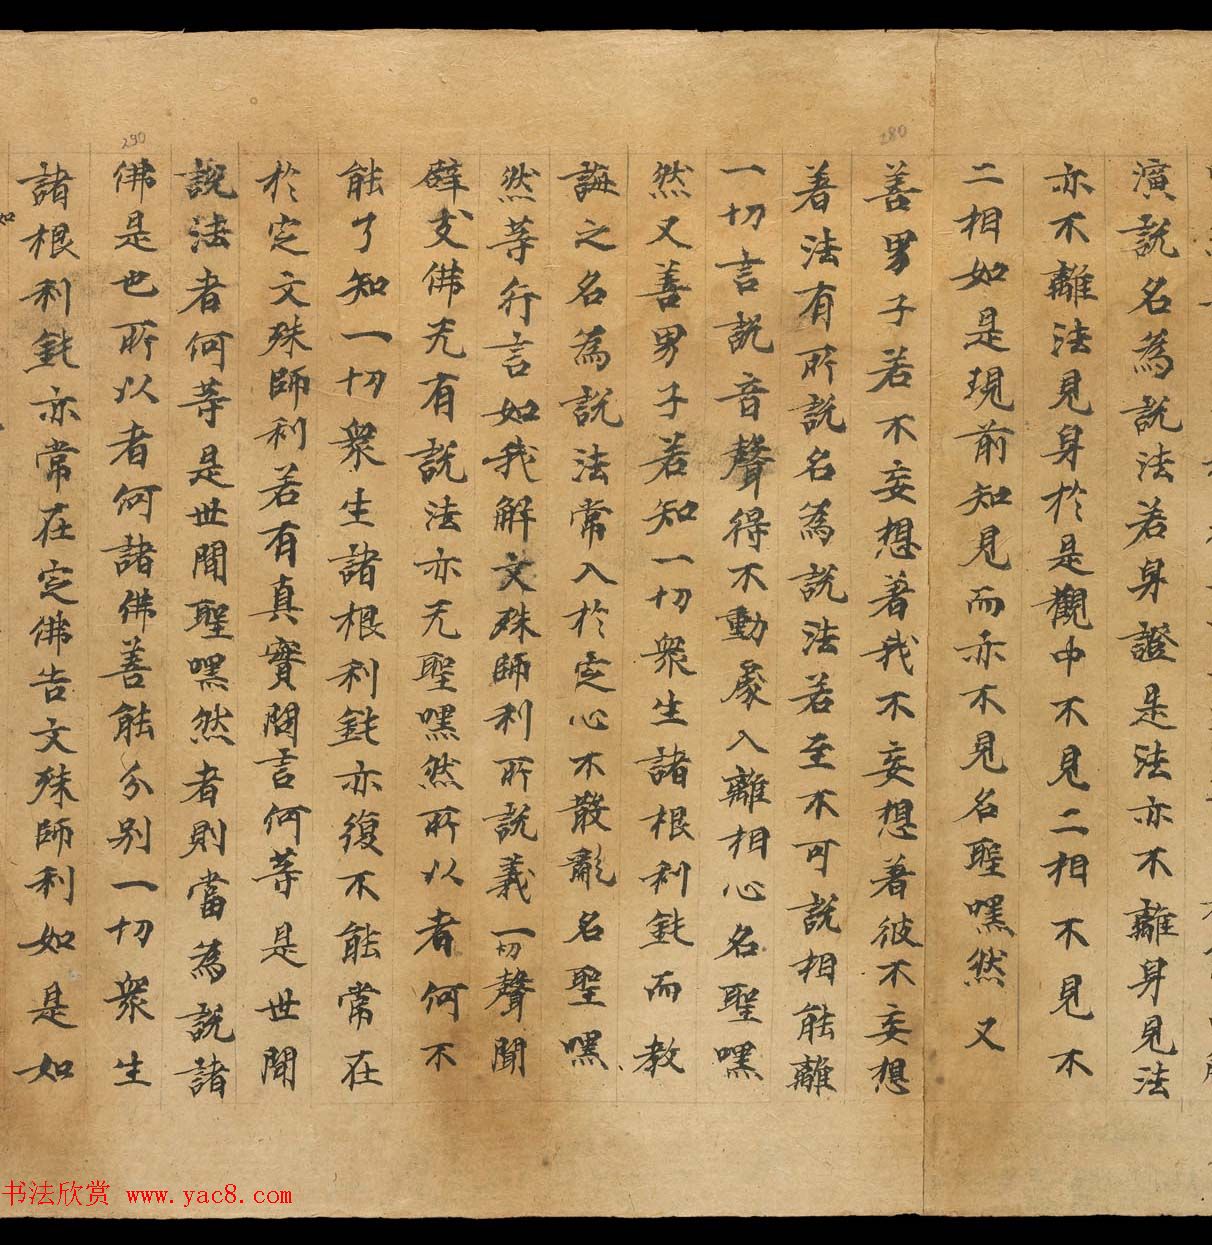 廣説名為説法若身證是法亦不離身見法
亦不離法見身於是觀中不見二相不見不
二相如是現前知見而亦不見名聖嘿然又
善男子若不妄想著我不妄想著彼不妄想
著法有所説名為説法若至不可説相能離
一切言説音聲得不動處入離相心名聖嘿
然又善男子若知一切衆生諸根利鈍而教
誨之名為説法常入於定心不散亂名聖嘿
然等行言如我解文殊師利所説義一切聲聞
辟支佛无有説法亦无聖嘿然所以者何不
能了知一切衆生諸根利鈍亦復不能常在
於定文殊師利若有真實問言何等是世間
説法者何等是世間聖嘿然者則當為説諸
佛是也所以者何諸佛善能分別一切衆生
諸根利鈍亦常在定佛告文殊師利如是如
280
290
书法欣赏 www.yac8.com